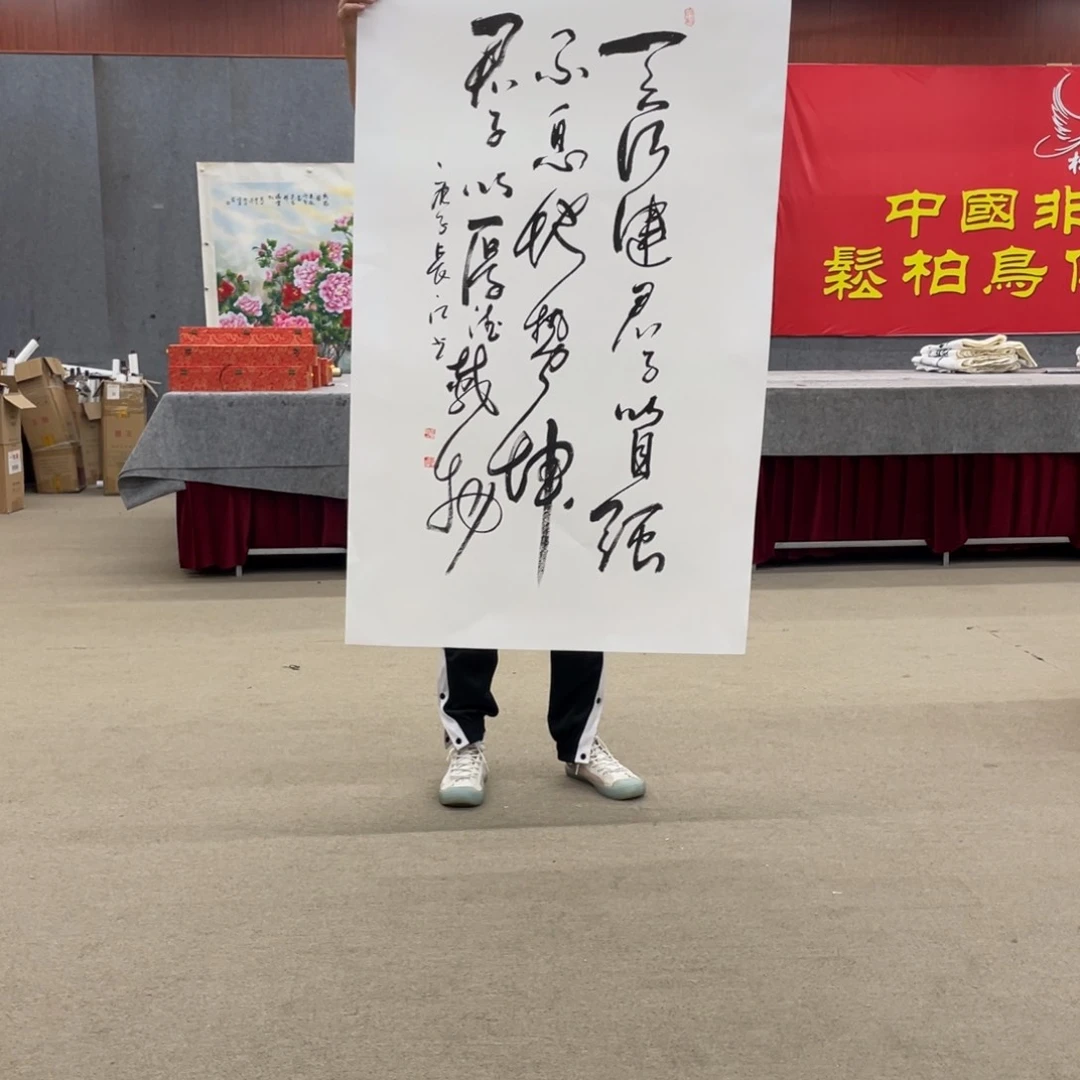 天行健君子以自强
不息地势坤
君子以厚德载物
庚子長江书
中國非
鬆柏鳥